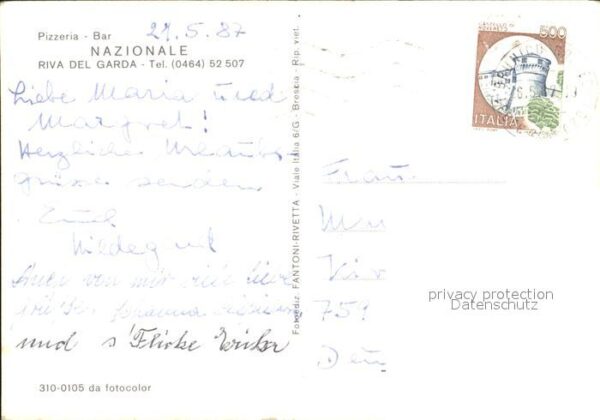 Pizzeria - Bar
21.5.87
NAZIONALE
RIVA DEL GARDA - Tel. (0464) 52 507
Liebe Maria und
Margret!
Herzliche Urlaubs-
grüsse senden
Hildegard
Auch von mir viele liebe
und s'Flicke
310-0105 da fotocolor
Fotoediz. FANTONI-RIVETTA - Viale Italia 6/G - Brescia - Rip. viet.
500
ITALIA
Frau
759
privacy protection
Datenschutz